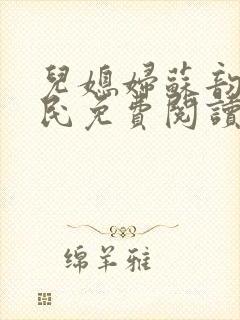 兒媳婦蘇韵
民免費閱讀
绵羊雅